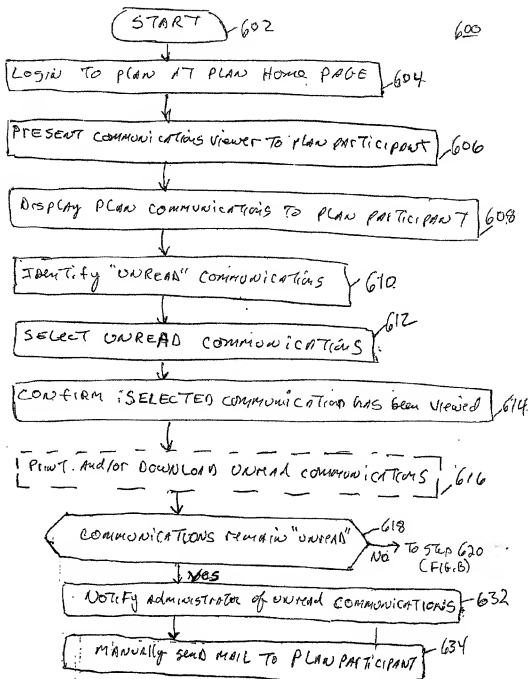 START
602
600
LOGIN TO PLAN AT PLAN HOME PAGE
604
PRESENT COMMUNICATIONS VIEWER TO PLAN PARTICIPANT
606
DISPLAY PLAN COMMUNICATIONS TO PLAN PARTICIPANT
608
IDENTIFY "UNREAD" COMMUNICATIONS
610
612
SELECT UNREAD COMMUNICATIONS
CONFIRM SELECTED COMMUNICATION HAS been viewed
614
PRINT And/or DOWNLOAD UNREAD COMMUNICATIONS
616
COMMUNICATIONS remain "UNREAD"
618
No
To Step 620
(FIG.B)
Yes
NOTIFY Administrator of UNREAD COMMUNICATIONS
632
MANUALLY SEND MAIL TO PLAN PARTICIPANT
634